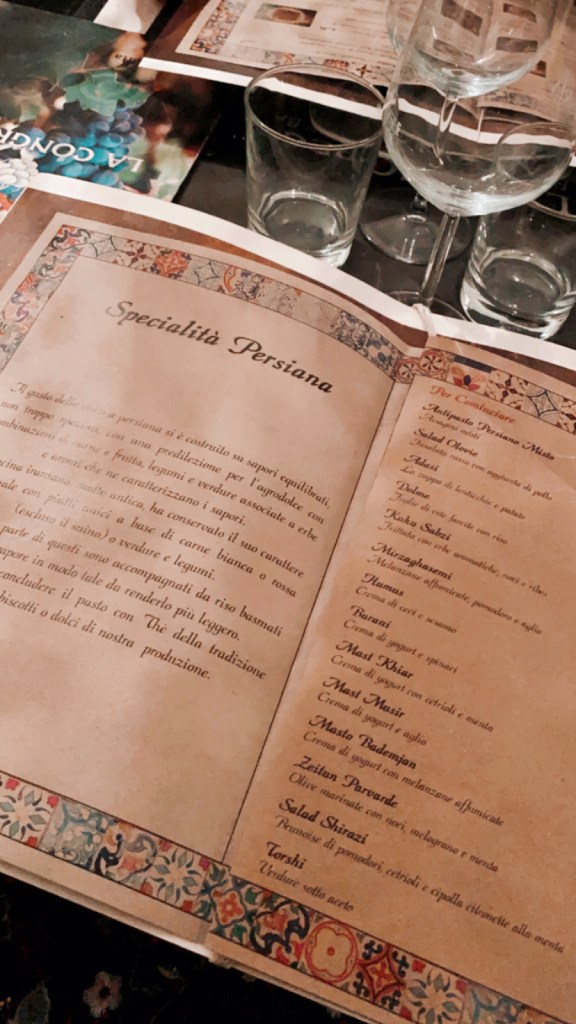 LA CONGR
Specialità Persiana
Il gusto della cucina persiana si è costruito su sapori equilibrati,
non troppo speziati, con una predilezione per l'agrodolce con
combinazioni di carne e frutta, legumi e verdure associate a erbe
e aromi che ne caratterizzano i sapori.
cina iraniana molto antica, ha conservato il suo carattere
ale con piatti unici a base di carne bianca o rossa
(escluso il suino) o verdure e legumi.
parte di questi sono accompagnati da riso basmati
vapore in modo tale da renderlo più leggero.
concludere il pasto con Thè della tradizione
biscotti o dolci di nostra produzione.
Per Cominciare
Antipasto Persiano Misto
Assaggini misti
Salad Olovie
Insalata russa con aggiunta di pollo
Adasi
La zuppa di lenticchie e patate
Dolme
Foglie di vite farcite con riso
Kuku Sabzi
Frittata con erbe aromatiche, noci e ribes
Mirzaghasemi
Melanzane affumicate, pomodoro e aglio
Humus
Crema di ceci e sesamo
Borani
Crema di yogurt e spinaci
Mast Khiar
Crema di yogurt con cetrioli e menta
Mast Musir
Crema di yogurt e aglio
Masto Bademjan
Crema di yogurt con melanzane affumicate
Zeitun Parvarde
Olive marinate con noci, melograno e menta
Salad Shirazi
Brunoise di pomodori, cetrioli e cipolla citronette alla menta
Torshi
Verdure sotto aceto